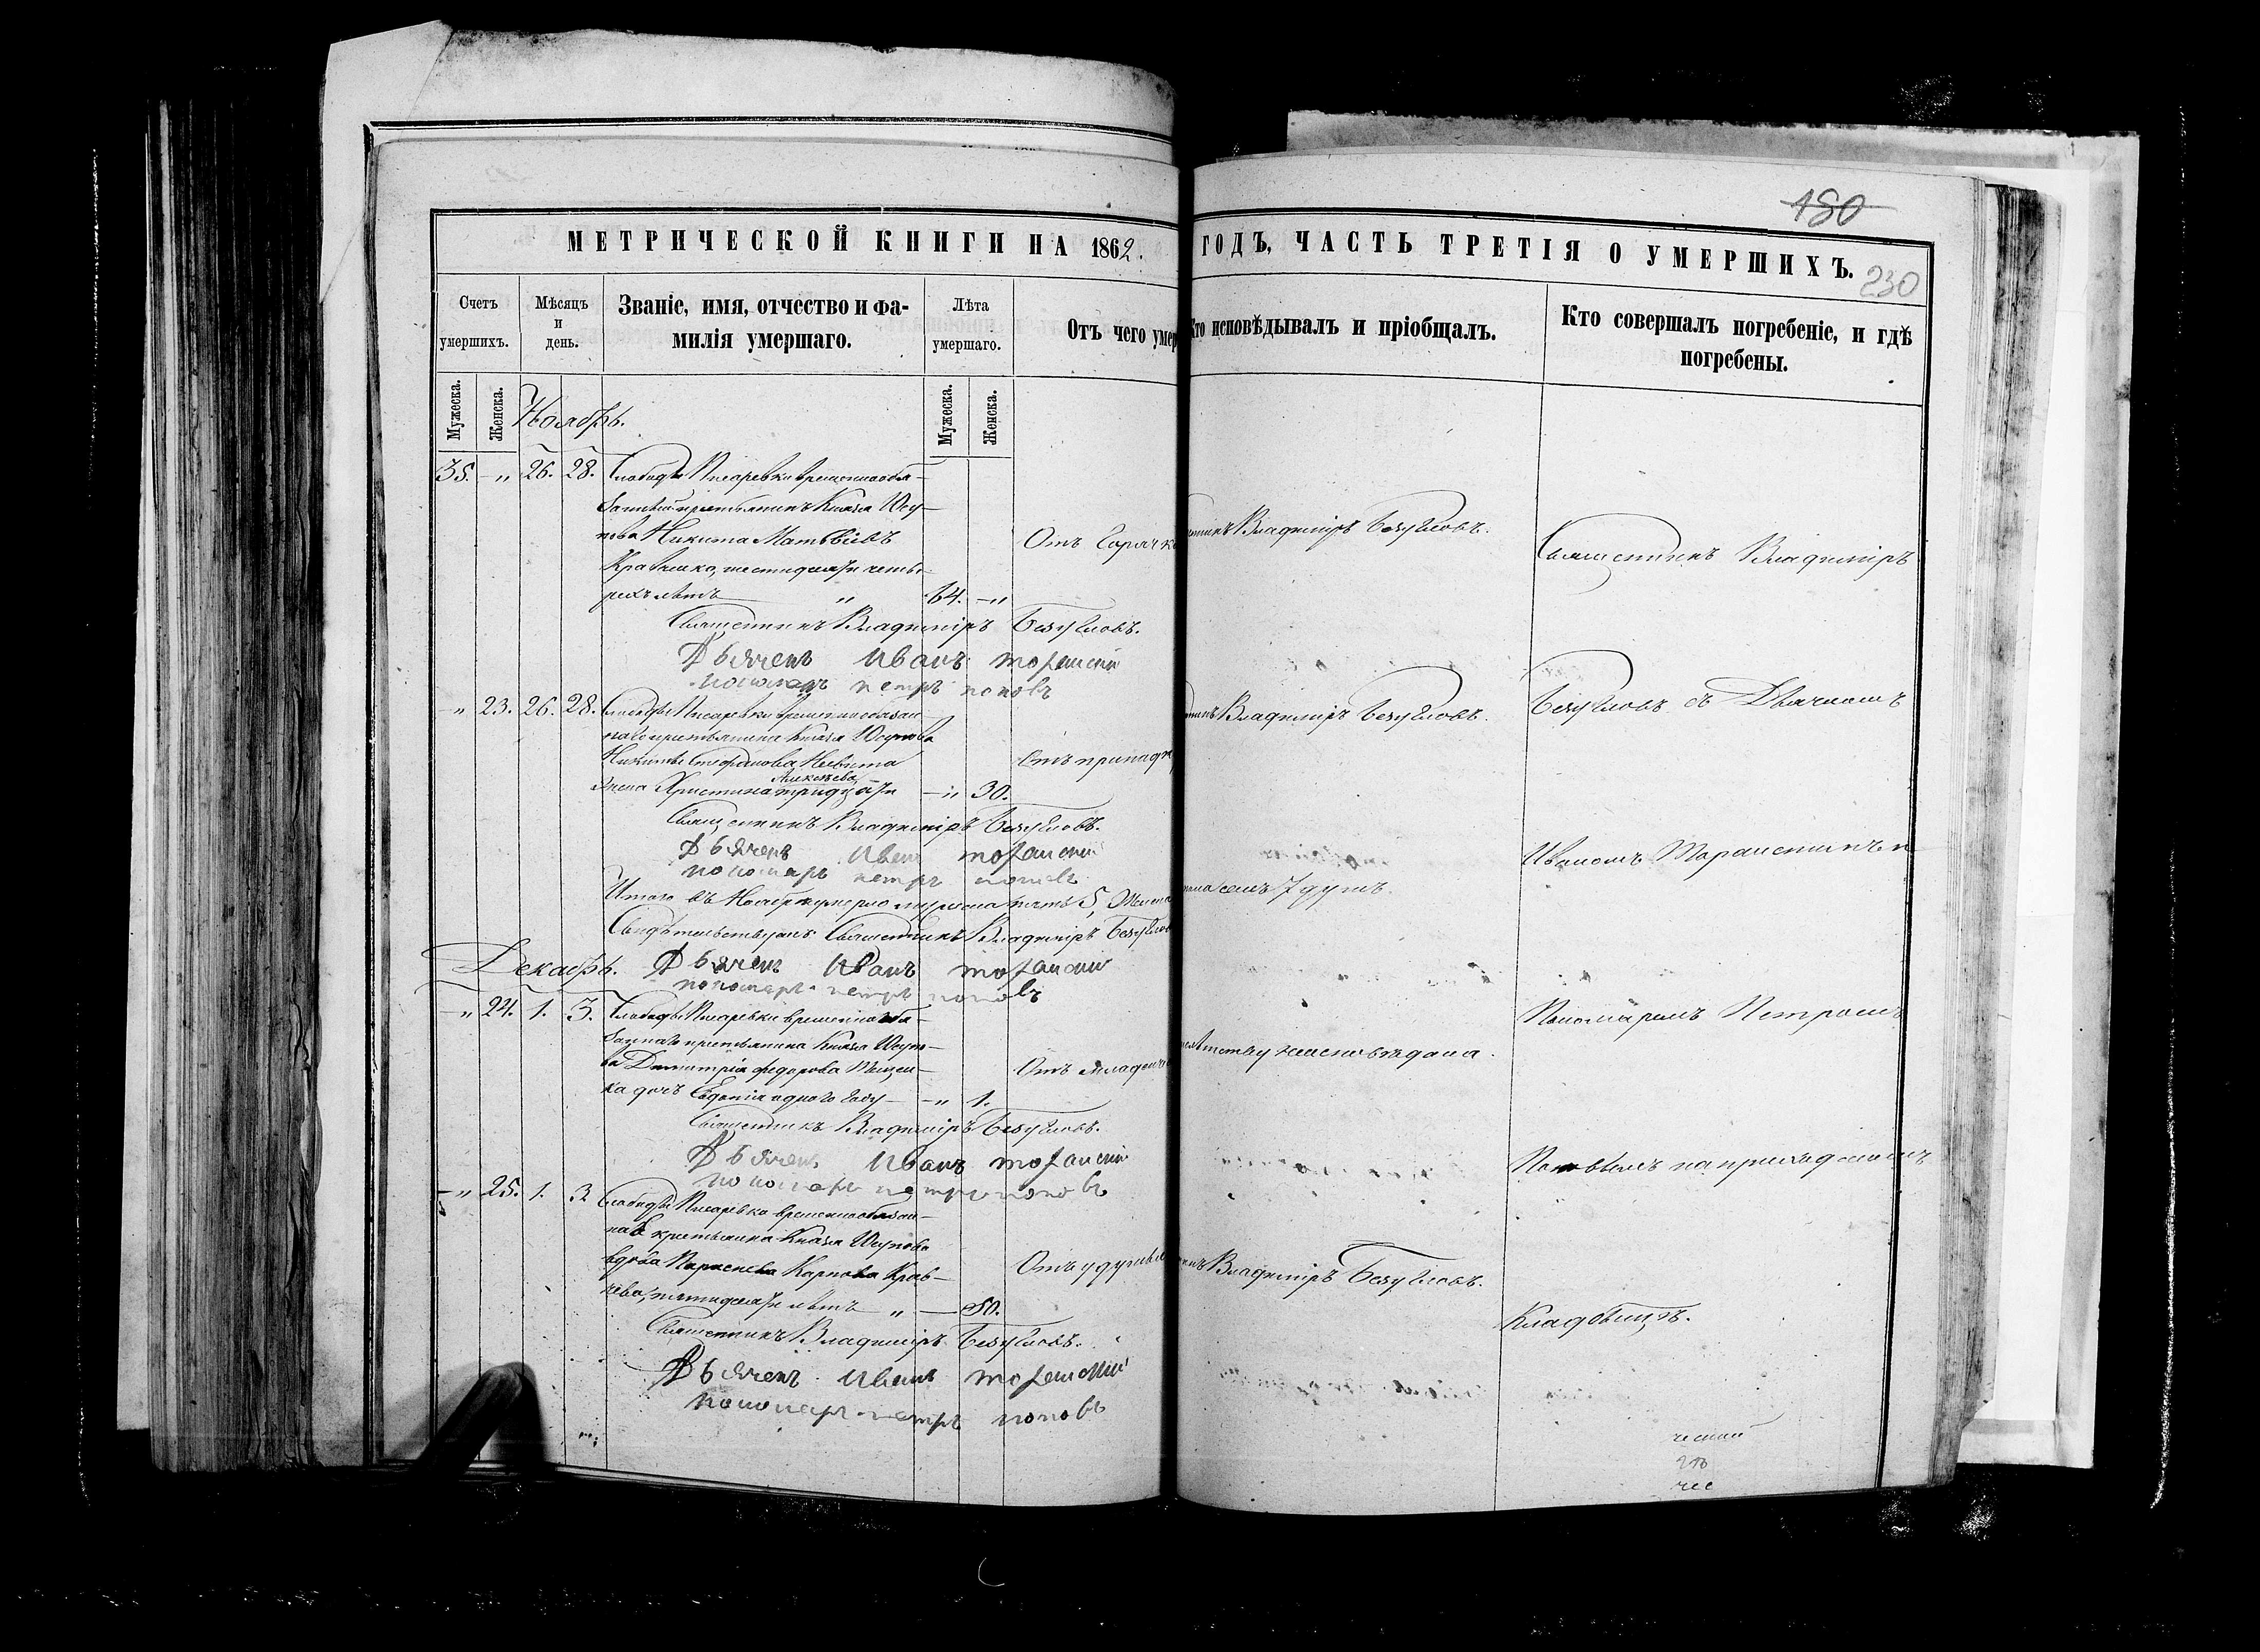 180
МЕТРИЧЕСКОЙ КНИГИ НА 1862.
ГОДЪ, ЧАСТЬ ТРЕТІЯ О УМЕРШИХЪ.
230
Счетъ умершихъ.
Мѣсяцъ и день.
Званіе, имя, отчество и фа-
милія умершаго.
Лѣта умершаго.
Отъ чего умер
Кто исповѣдывалъ и пріобщалъ.
Кто совершалъ погребеніе, и гдѣ
погребены.
Мужеска.
Женска.
Мужеска.
Женска.
Ноябрь.
35. - " 26. 28. Слободы Писаревки временнообя-
занный крестьянинъ Князя Юсу-
пова Никита Матвѣевъ
Кравченко, шестидесяти четы-
рехъ лѣтъ " 64. - "
Отъ горячк
Владиміръ Безугловъ.
Священникъ Владиміръ Безугловъ.
Дьячекъ Иванъ
пономарь петръ поповъ
- " 23. 26. 28. Слободы Писаревки временнообязан-
наго крестьянина Князя Юсупова
Никиты Стефанова
жена Христина Алексѣева тридцати - " 30.
Отъ припадк
Владиміръ Безугловъ.
Священникъ Владиміръ Безугловъ.
Дьячекъ Иван
пономарь петръ поповъ
Итого въ Ноябрѣ умерло мужеска пять 5, женска
семь 7 душъ.
Свидѣтельствуютъ: Священникъ Владиміръ Безуглов
Дьячекъ Иванъ
пономарь петръ поповъ
Декабрь.
- " 24. 1. 3. Слободы Писаревки временнообя-
заннаго крестьянина Князя Юсупо-
ва Димитрія Федорова
дочь Евдокія одного году - " 1.
Отъ младенч
Священникъ Владиміръ Безугловъ.
Дьячекъ Иванъ
пономарь петръ поповъ
- " 25. 1. 3. Слободы Писаревки временнообязан-
наго крестьянина Князя Юсупова
вдова Параскева Карпова Крав-
пятидесяти лѣтъ " - 50.
Отъ удушья
Владиміръ Безугловъ.
Священникъ Владиміръ Безугловъ.
Дьячекъ Иванъ
пономарь петръ поповъ
Священникъ Владиміръ
Безугловъ съ Дьячкомъ
Иваномъ
Пономаремъ Петромъ
Поповымъ на приходскомъ
Кладбищѣ.